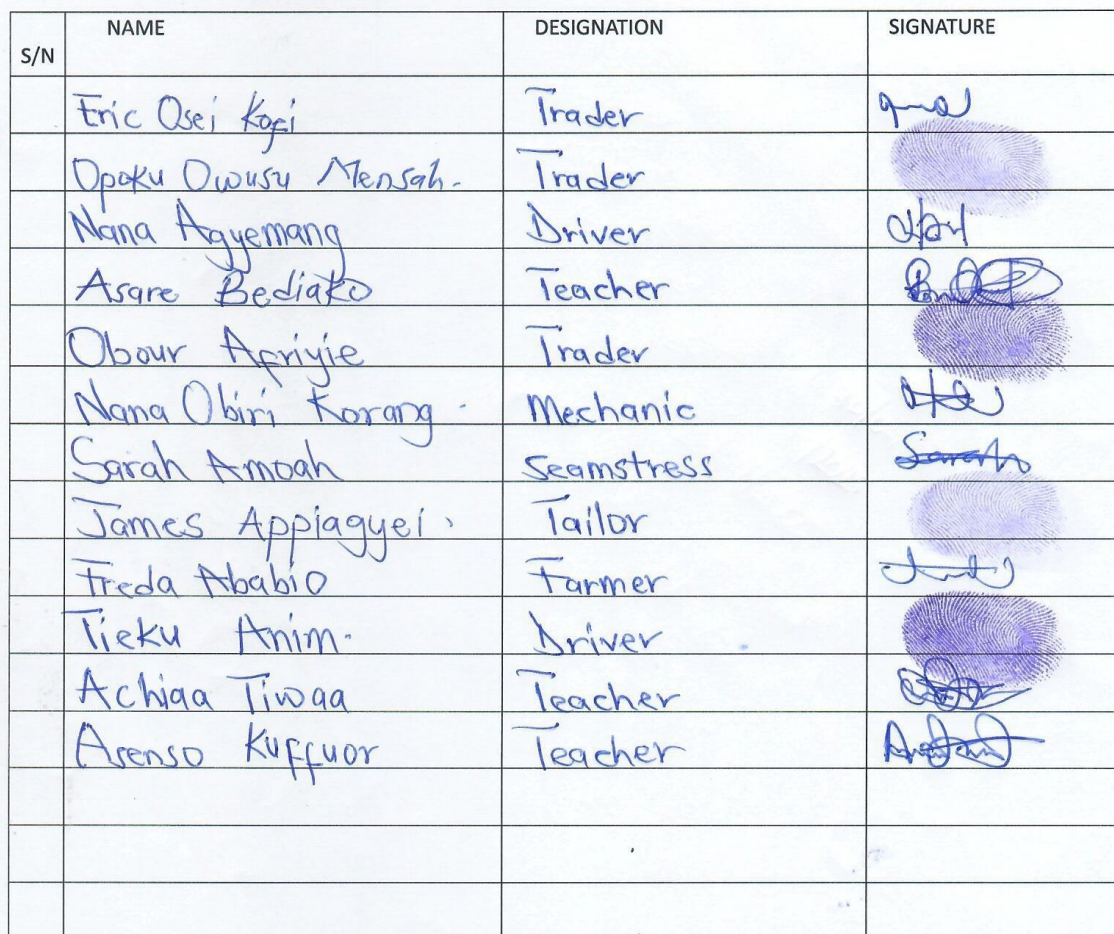 S/N NAME DESIGNATION SIGNATURE
Eric Osei Kofi Trader
Opoku Owusu Mensah. Trader
Nana Agyemang Driver
Asare Bediako Teacher
Obour Afriyie Trader
Nana Obiri Korang. Mechanic
Sarah Amoah Seamstress Sarah
James Appiagyei. Tailor
Freda Ababio Farmer
Tieku Anim. Driver
Achiaa Tiwaa Teacher
Asenso Kuffuor Teacher